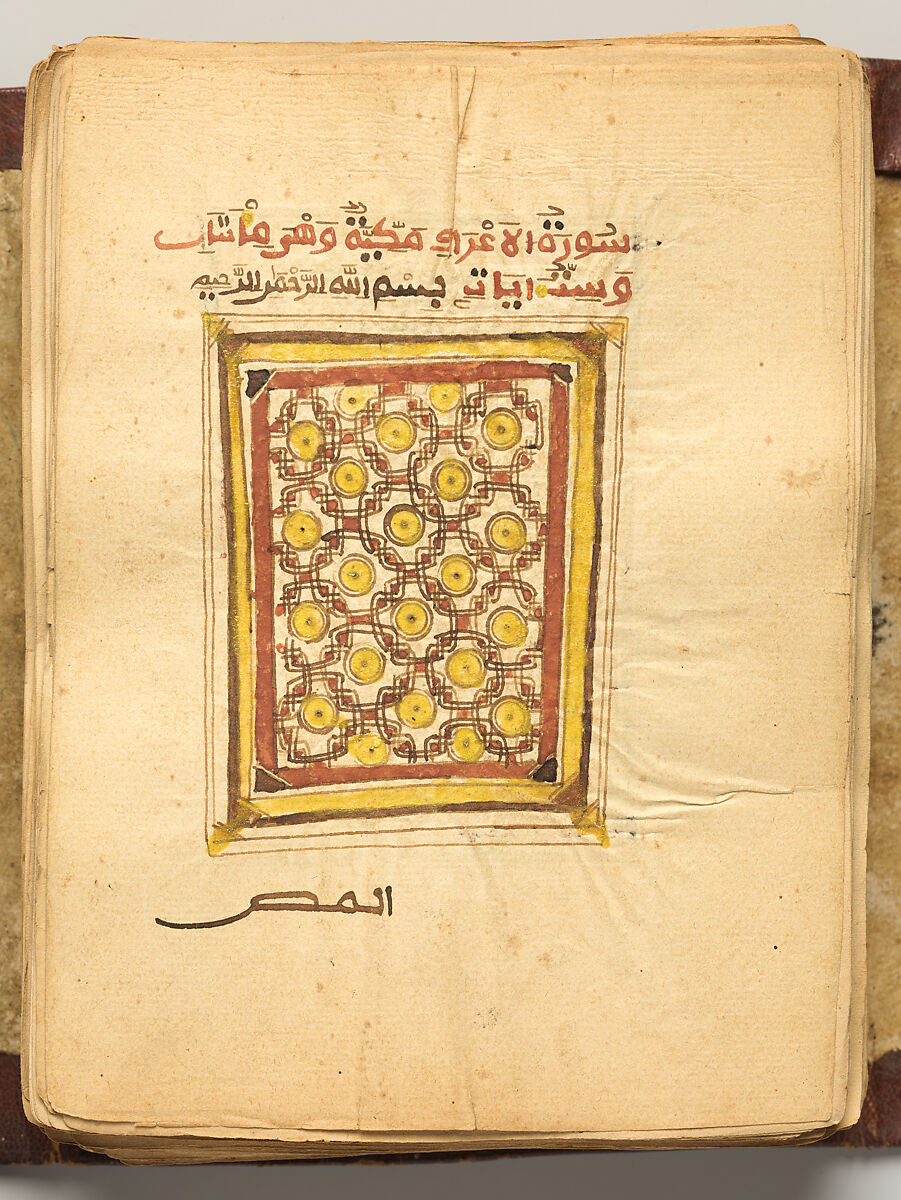 سُورَةُ الَاعْرَافِ مَكِّيَّةٌ وَهْىَ مِاْئَتَانِ
وَسِتُّ ايَاتٍ بِسْمِ اللَّهِ الرَّحْمَٰنِ الرَّحِيمِ
المص